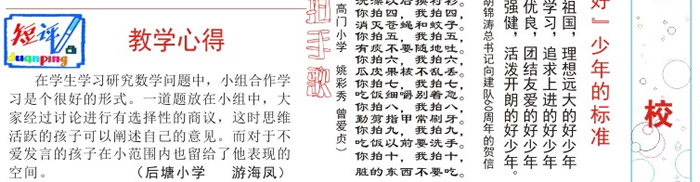 短评
duanping
教学心得
在学生学习研究数学问题中，小组合作学
习是个很好的形式。一道题放在小组中，大
家经过讨论进行有选择性的商议，这时思维
活跃的孩子可以阐述自己的意见。而对于不
爱发言的孩子在小范围内也留给了他表现的
空间。
（后塘小学 游海凤）
拍手歌
高门小学 姚彩秀 曾爱贞）
洗澡以后换衬衫。
你拍四，我拍四，
消灭苍蝇和蚊子。
你拍五，我拍五，
有痰不要随地吐。
你拍六，我拍六，
瓜皮果核不乱丢。
你拍七，我拍七，
吃饭细嚼别着急。
你拍八，我拍八，
勤剪指甲常刷牙。
你拍九，我拍九，
吃饭以前要洗手。
你拍十，我拍十，
脏的东西不要吃。
好”少年的标准
祖国，理想远大的好少年
学习，追求上进的好少年
优良，团结友爱的好少年
强健，活泼开朗的好少年。
胡锦涛总书记向建队60周年的贺信
校